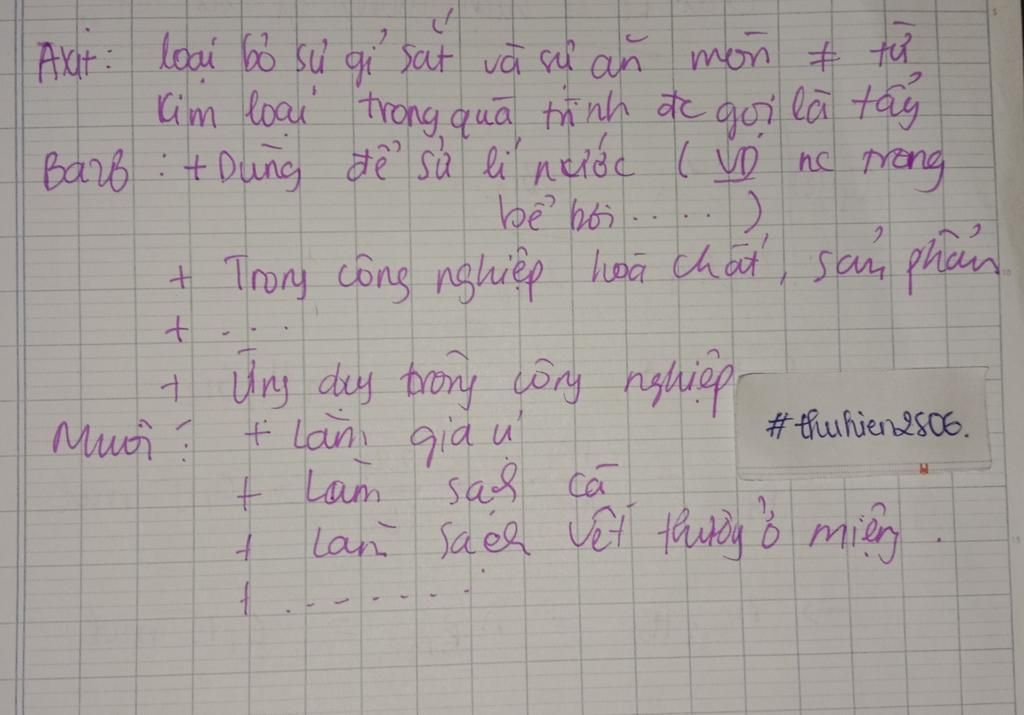 Axit: loại bỏ sự gỉ sắt và sự ăn mòn ≠ từ
kim loại trong quá trình đc gọi là tẩy
Bazơ : + Dùng để sử lí nước ( VD nc trong
bể bơi ..... )
+ Trong công nghiệp hoá chất, sản phẩn
+ ...
+ Ứng dụg trong công nghiệp
Muối : + Làm gia vị
+ Làm sạch cá
+ Làm sạch vết thươg ở miệng .
+ .......
#thuhien2806.